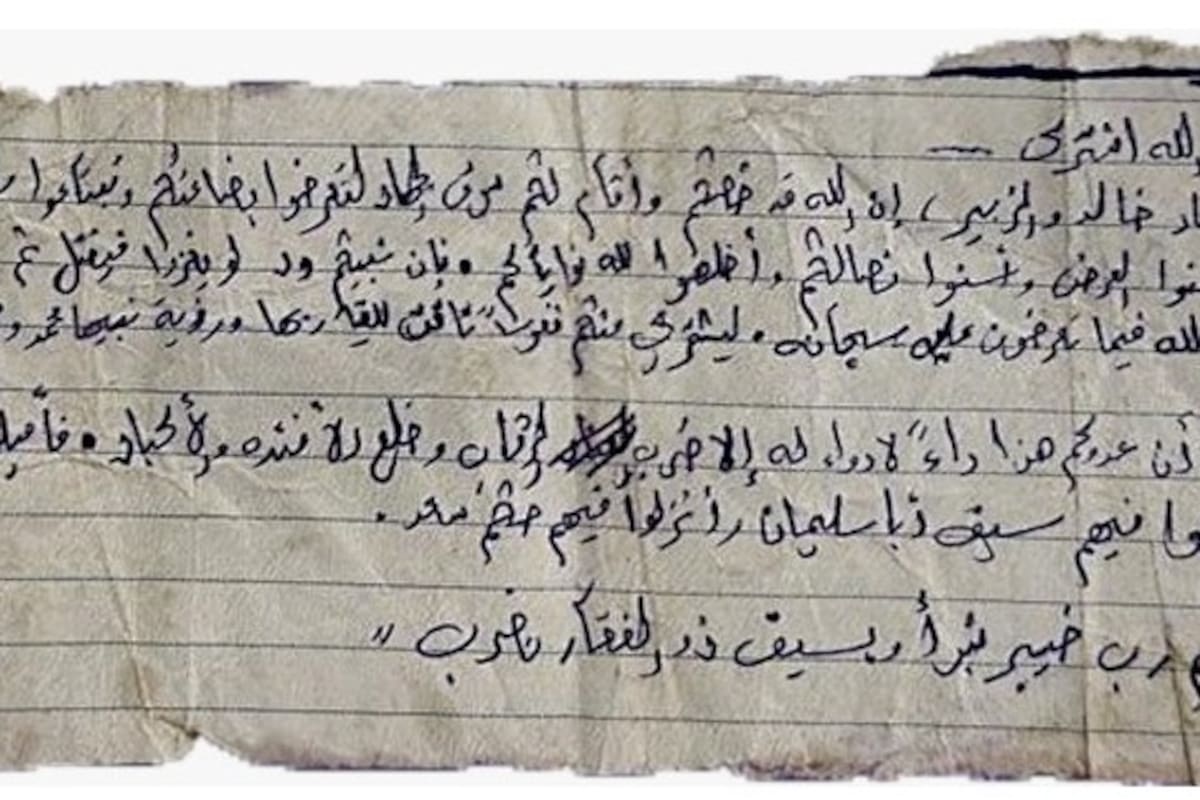 لله اشترى —
خالد والزبير، إن الله قد خصكم وأقام لكم سوق جهاد لتعرضوا بضاعتكم وتبتاعوا
العرض وأسنوا نصالكم وأخلصوا لله نواياكم . فإن نبيكم ود لو يغزوا فيقتل ثم
لله فيما تعرضون عليه سبحانه . ليشتري منكم نفوساً تاقت للقاء ربها ورؤية نبيها محمد
أن عدوكم هذا داءً لا دواء له إلا ضرب الرقاب وخلع الأفئده والأكباد . فأ
فيهم سيوف أبا سليمان وأنزلوا فيهم حكم سعد .
رب خيبر نبرأ وبسيف ذو الفقار نضرب "